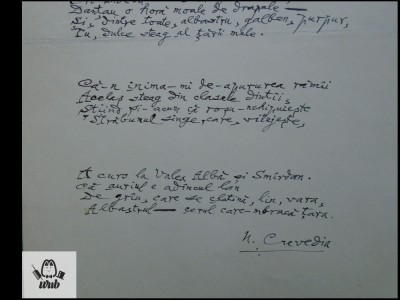 Dansau o horă moale de drapele —
Și, dintre toate, albastru, galben, purpur,
Tu, dulce steag al țării mele.
Că-n inima-mi de-apururea
Același steag din clasele dintîi,
Știind și-acuș că roșu-nchipuiește
Străbunul sînge care, vitejește,
A curs la Valea Albă și Smîrdan.
Că auriul e adîncul lan
De grîu, care se clatină, lin, vara,
Albastrul — cerul care-mbracă țara.
N. Crevedia
wub